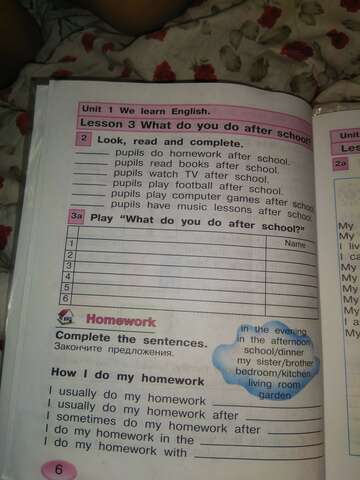 Unit 1 We learn English.
Lesson 3 What do you do after school?
2 Look, read and complete.
______ pupils do homework after school.
______ pupils read books after school.
______ pupils watch TV after school.
______ pupils play football after school.
______ pupils play computer games after school.
______ pupils have music lessons after school.
3a Play "What do you do after school?"
Name
1
2
3
4
5
6
Homework
Complete the sentences.
Закончите предложения.
in the evening
in the afternoon
school/dinner
my sister/brother
bedroom/kitchen
living room
garden
How I do my homework
I usually do my homework ______
I usually do my homework after ______
I sometimes do my homework after ______
I do my homework in the ______
I do my homework with ______
6
Unit
Les
2a
My
My
I li
I ca
My
My
My
My
I a
My